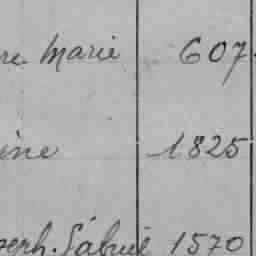 re Marie 607.
ine 1825
seph. Gabriel 1570